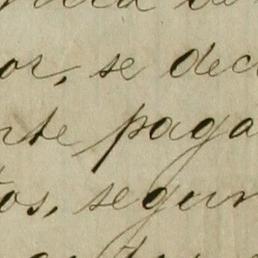 or, se dec
rte paga
tos, segun